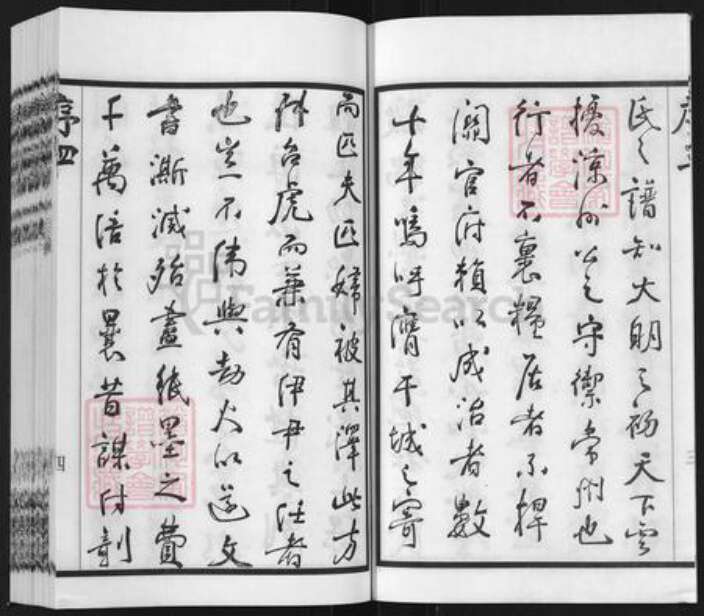 氏之譜知大明之初天下雲
擾涼州公之守禦常州也
行者不裹糧居者不捍
關官府賴以成治者數
十年嗚呼膺干城之寄
而匹夫匹婦被其澤此方
叔召虎而兼有伊尹之任者
也豈不偉與劫火以還文
書澌滅殆盡紙墨之費
十萬倍於曩昔謀付剞
序四
四
FamilySearch